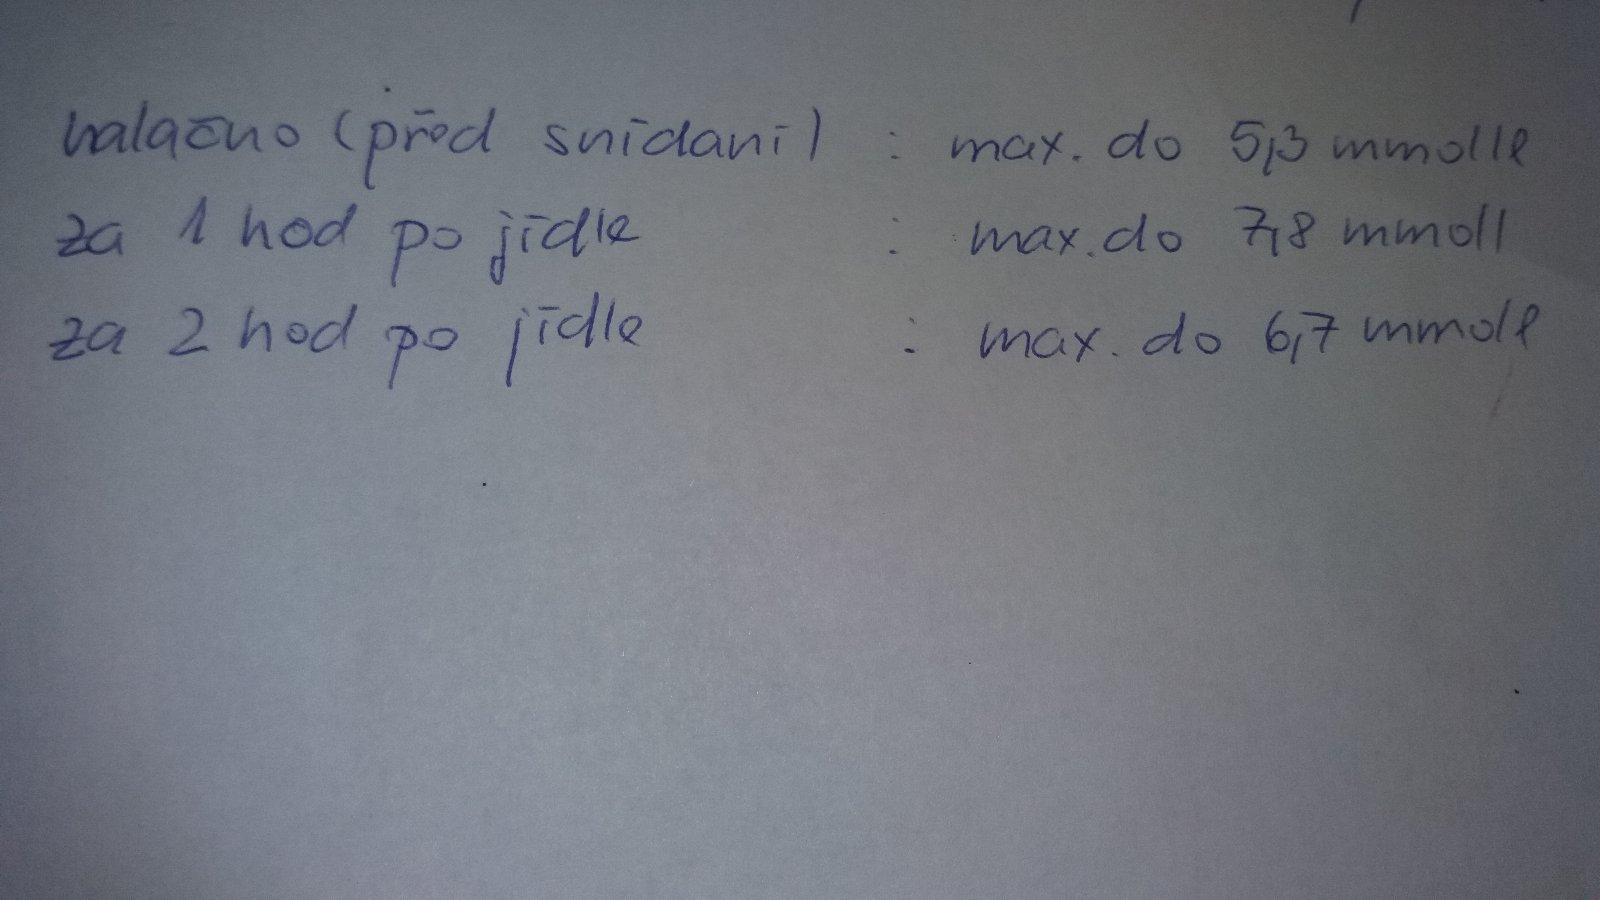 nalačno (před snídaní) : max. do 5,3 mmol/l
za 1 hod po jídle : max. do 7,8 mmol/l
za 2 hod po jídle : max. do 6,7 mmol/l